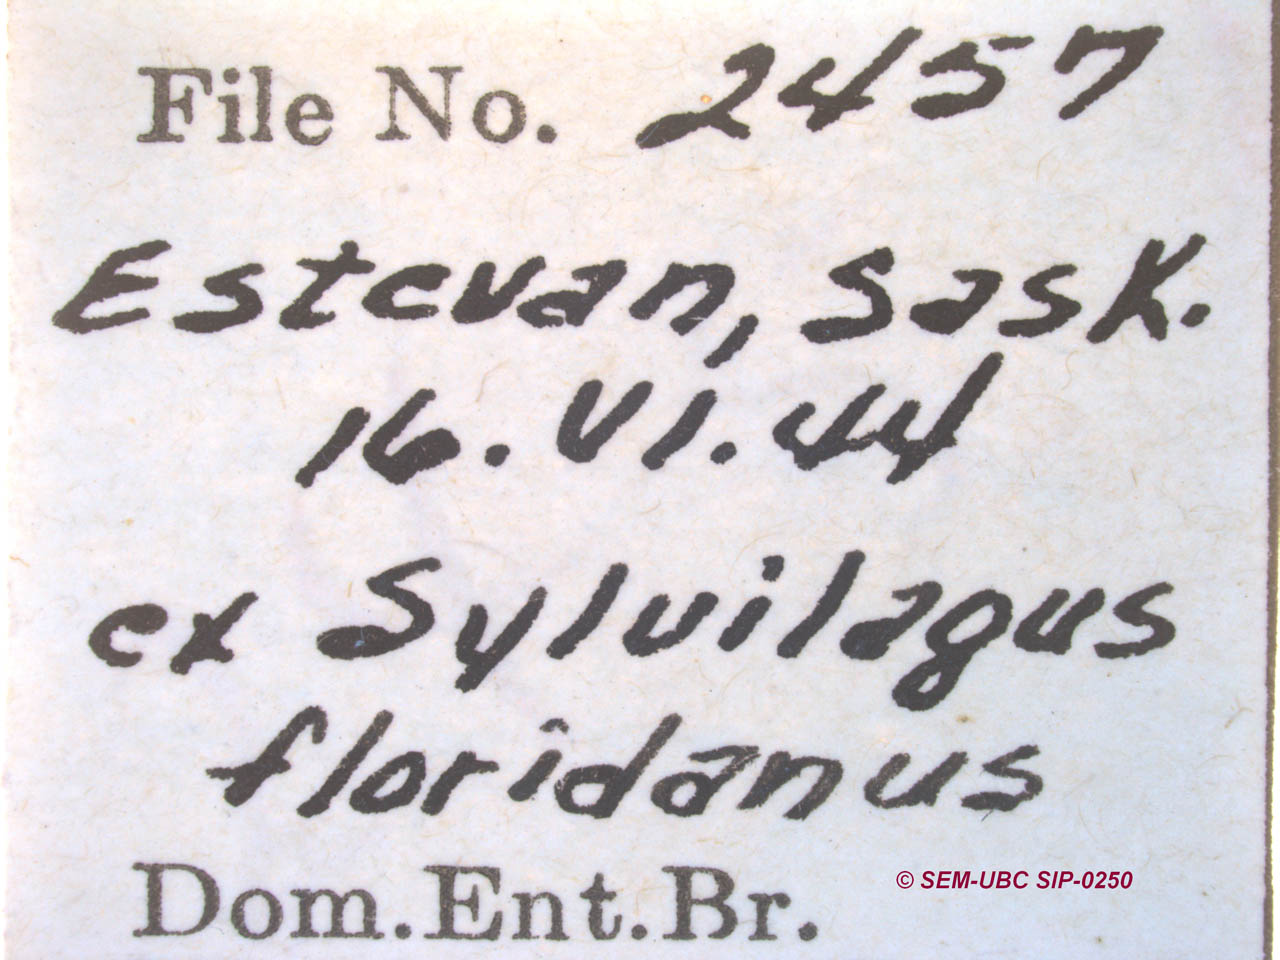 File No. 2457
Estevan, Sask.
16.VI.44
ex Sylvilagus
floridanus
Dom.Ent.Br.
© SEM-UBC SIP-0250